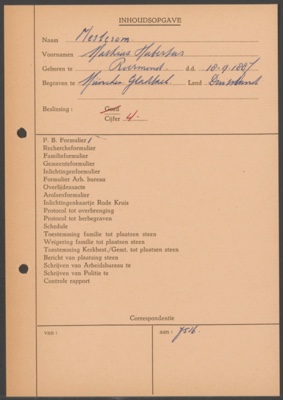 INHOUDSOPGAVE
Naam Mesterom
Voornamen Mathias Hubertus
Geboren te Roermond d.d. 18-9-1887
Begraven te München Gladbach Land Duitsland
Beslissing : Goed
Cijfer 4.
P. B. Formulier 1
Rechercheformulier
Familieformulier
Gemeenteformulier
Inlichtingenformulier
Formulier Arb. bureau
Overlijdensacte
Artsenformulier
Inlichtingenkaartje Rode Kruis
Protocol tot overbrenging
Protocol tot herbegraven
Schedule
Toestemming familie tot plaatsen steen
Weigering familie tot plaatsen steen
Toestemming Kerkbest./Geest. tot plaatsen steen
Bericht van plaatsing steen
Schrijven van Arbeidsbureau te
Schrijven van Politie te
Controle rapport
Correspondentie
van : aan :